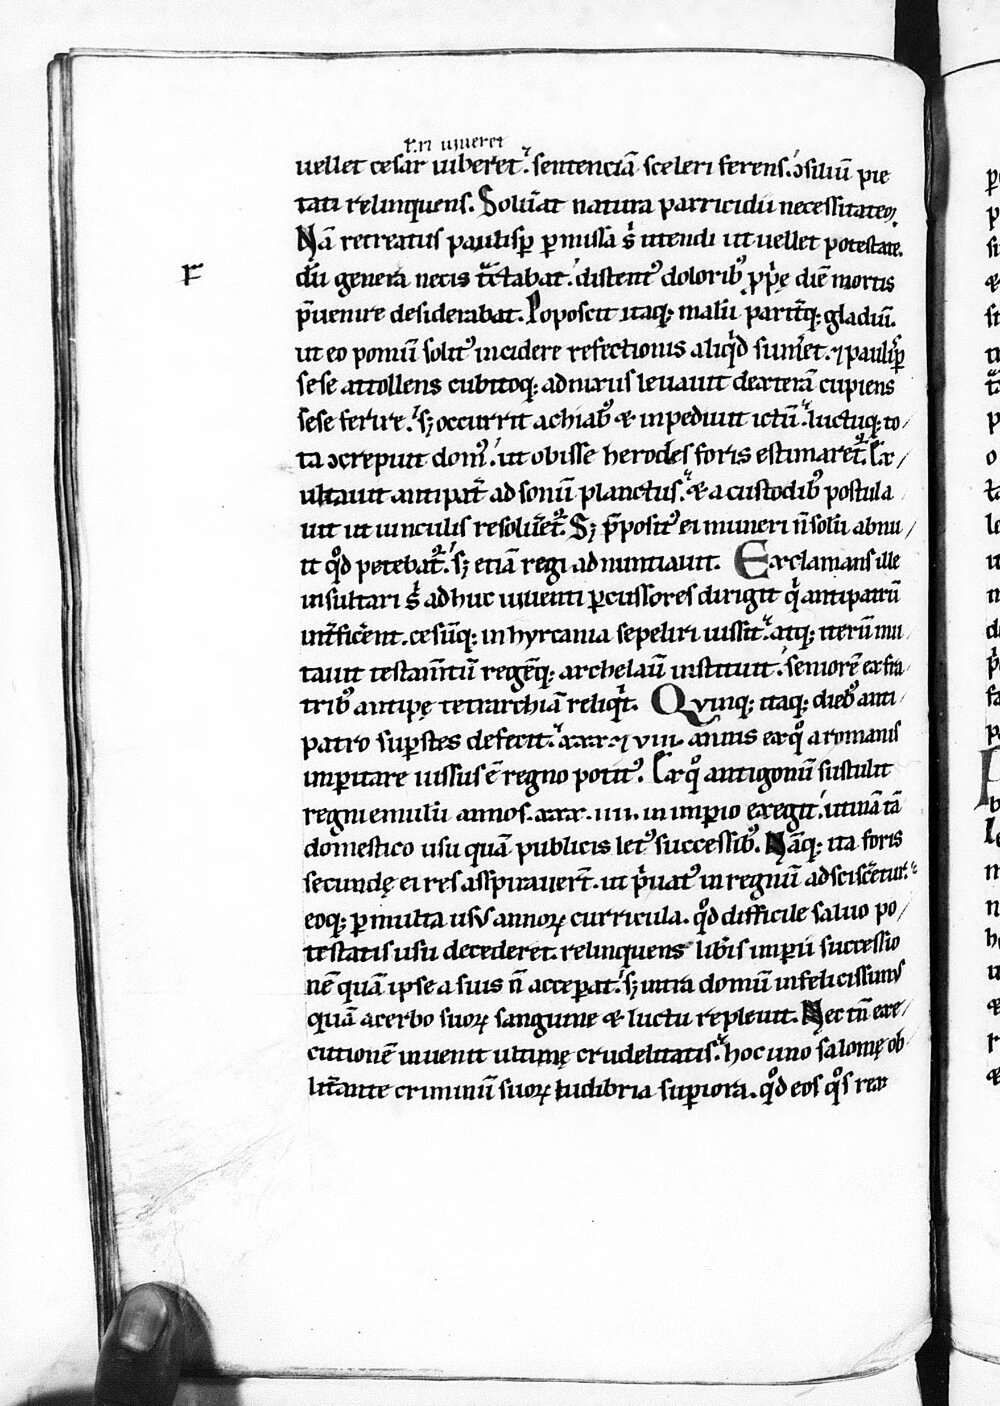 r. ri uiueret
uellet cesar iuberet. sentenciā sceleri ferens. ɔsiliū pie
tati relinquens. Soluat̄ natura parricidii necessitateꝫ.
Nā recreatus paulisꝑ ꝑmissā s̓ utendi ut uellet potestatē.
dū genera necis tc̄tabat. distentꝰ doloribꝰ ꝓp̓ę diē mortis
p̄uenire desiderabat. Poposcit itaqꝫ malū parit̄qꝫ gladiū.
ut eo pomū solitꝰ incidere refectionis aliqͥd sum̄et. ⁊ paulisꝑ
sese attollens cubitoqꝫ adnixus leuauit dexterā cupiens
sese ferire. sꝫ occurrit achiabꝰ & inpediuit ictū. luctuqꝫ to/
ta ɔcrepuit domꝰ. ut obisse herodes foris estimaret᷑. Ex/
ultauit antipat̄ ad sonū planctus. & a custodibꝰ postula
uit ut uinculis resolūet᷑. Sꝫ p̄positꝰ ei muneri n̄ solū abnu/
it qͦd petebat᷑. sꝫ etiā regi adnuntiauit. Exclamans ille
insultari s̓ adhuc uiuenti ꝑcussores dirigit qͥ antipatrū
int̄ficerent. cesūqꝫ in hyrcania sepeliri iussit. atqꝫ iterū mu
tauit testam̄tū regēqꝫ archelaū instituit. seniorē ex fra/
tribꝰ antipę tetrarchiā reliqͥt. Qvinqꝫ itaqꝫ diebꝰ anti/
patro suꝑstes defecit. xxx. ⁊ vii. annis ex qͦ a romanis
imꝑitare iussus ē regno potitꝰ. Ex qͦ antigonū sustulit
regni emulū annos. xxx. iiii. in imꝑio exegit. utinā tā
domestico usu quā publicis letꝰ successibꝰ. Nāqꝫ ita foris
secundę ei res asspirauert̄. ut p̄uatꝰ in regnū adscisceretur.
eoqꝫ ꝑ multa usus annoꝝ curricula. qͦd difficile saluo po/
testatis usu decederet. relinquens libīs imꝑii successio
nē quā ipse a suis n̄ acceꝑat. sꝫ intra domū infelicissimꝰ
quā acerbo suoꝝ sanguine & luctu repleuit. Nec tn̄ exe/
cutionē inuenit ultimę crudelitatis. hoc uno salomę ob/
lit̄ante criminū suoꝝ ludibria suꝑiora. qͦd eos qͦs rex